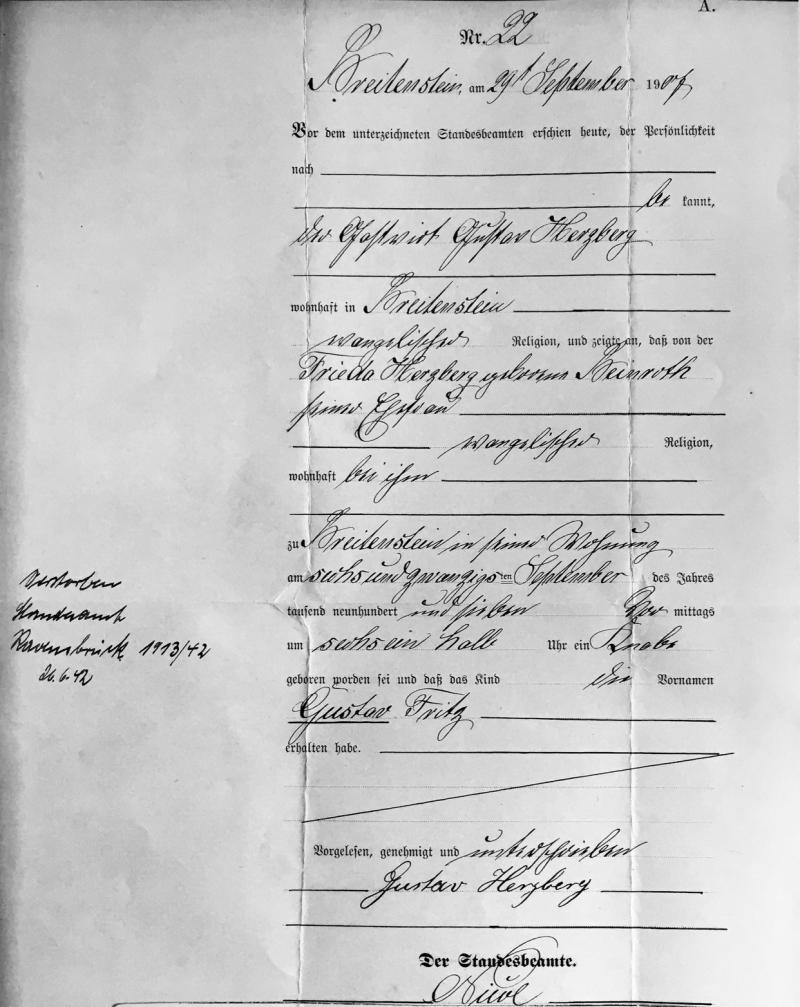 A.
Nr. 22
Breitenstein, am 29t September 1907
Vor dem unterzeichneten Standesbeamten erschien heute, der Persönlichkeit
nach
be kannt,
der Gastwirt Gustav Herzberg
wohnhaft in Breitenstein
evangelischer Religion, und zeigte an, daß von der
Frieda Herzberg geborene Beinroth
seiner Ehefrau
evangelischer Religion,
wohnhaft bei ihm
zu Breitenstein in seiner Wohnung
am sechsundzwanzigsten September des Jahres
tausend neunhundert und sieben Vor mittags
um sechs ein halb Uhr ein Knabe
geboren worden sei und daß das Kind die Vornamen
Gustav Fritz
erhalten habe.
Vorgelesen, genehmigt und unterschrieben
Gustav Herzberg
Der Standesbeamte.
Nicol
Verstorben
Standesamt
Ravensbrück 1913/42
26.6.42